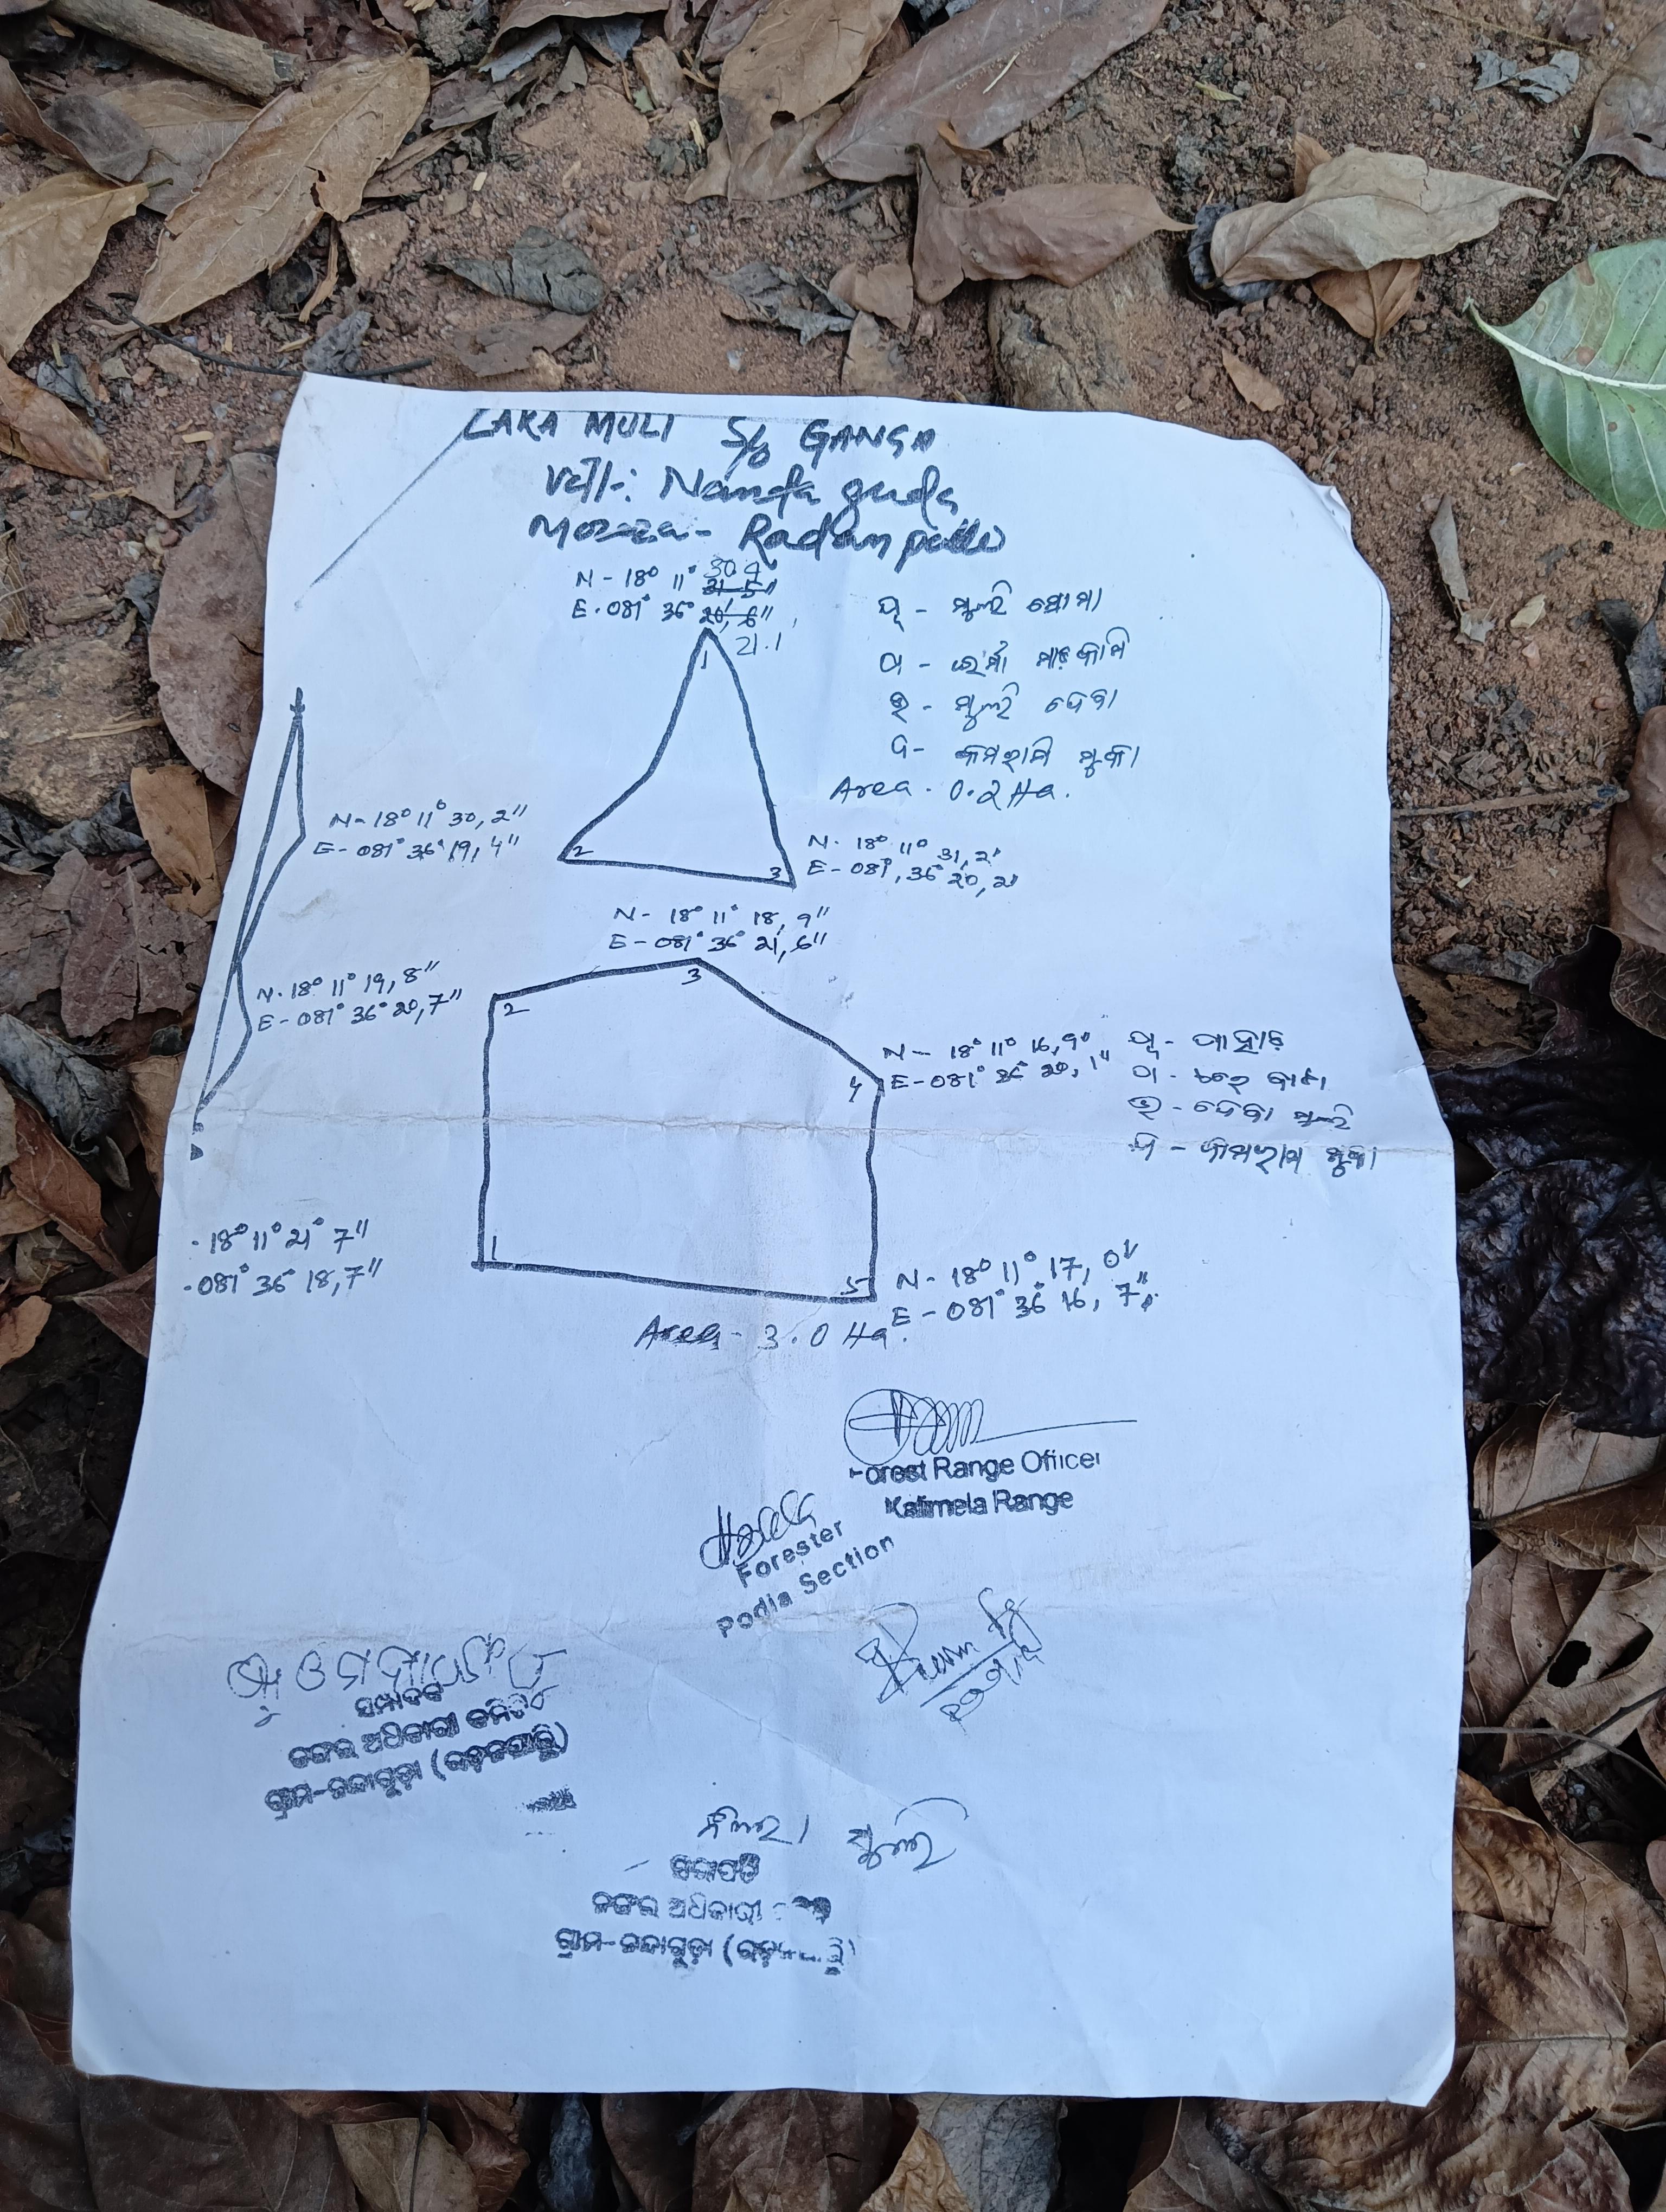 LAKA MULI S/o GANGA
Vill-: Nandaguda
Mozza- Radampalli
N-18° 11° 30.9
31,5"
E-081° 36° 20,6"
21.1
1
ପୂ - ମୁଲି ଯୋମା
ପ - ଇର୍ମା ମାଡକାମି
ଉ - ମୁଲି ଦେବା
ଦ - କମରାମି ମୁକା
Area - 0.2 Ha.
N-18° 11° 30,2"
E-081° 36° 19,4"
2
3
N-18° 11° 31,2"
E-081°, 36° 20,2"
N-18° 11° 18,9"
E-081° 36° 21,6"
3
N-18° 11° 19,8"
E-081° 36° 20,7"
2
N-18° 11° 16,9"
E-081° 36° 20,1"
4
ପୂ - ପାହାଡ
ଉ - ଦେବା ମୁଲି
1
-18° 11° 21° 7"
-081° 36° 18,7"
5
N-18° 11° 17,0"
E-081° 36° 16,7"
Area - 3.0 Ha.
Forest Range Officer
Kalimela Range
Forester
Podia Section
ସମ୍ପାଦକ
ଜଙ୍ଗଲ ଅଧିକାରୀ କମିଟି
ଗ୍ରାମ-ନନ୍ଦାଗୁଡ଼ା
ମୁଲି
ସଭାପତି
ଜଙ୍ଗଲ ଅଧିକାରୀ
ଗ୍ରାମ-ନନ୍ଦାଗୁଡ଼ା